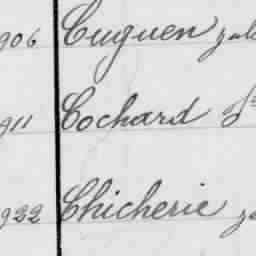 906 Cuguen
911 Cochard
922 Chicherie